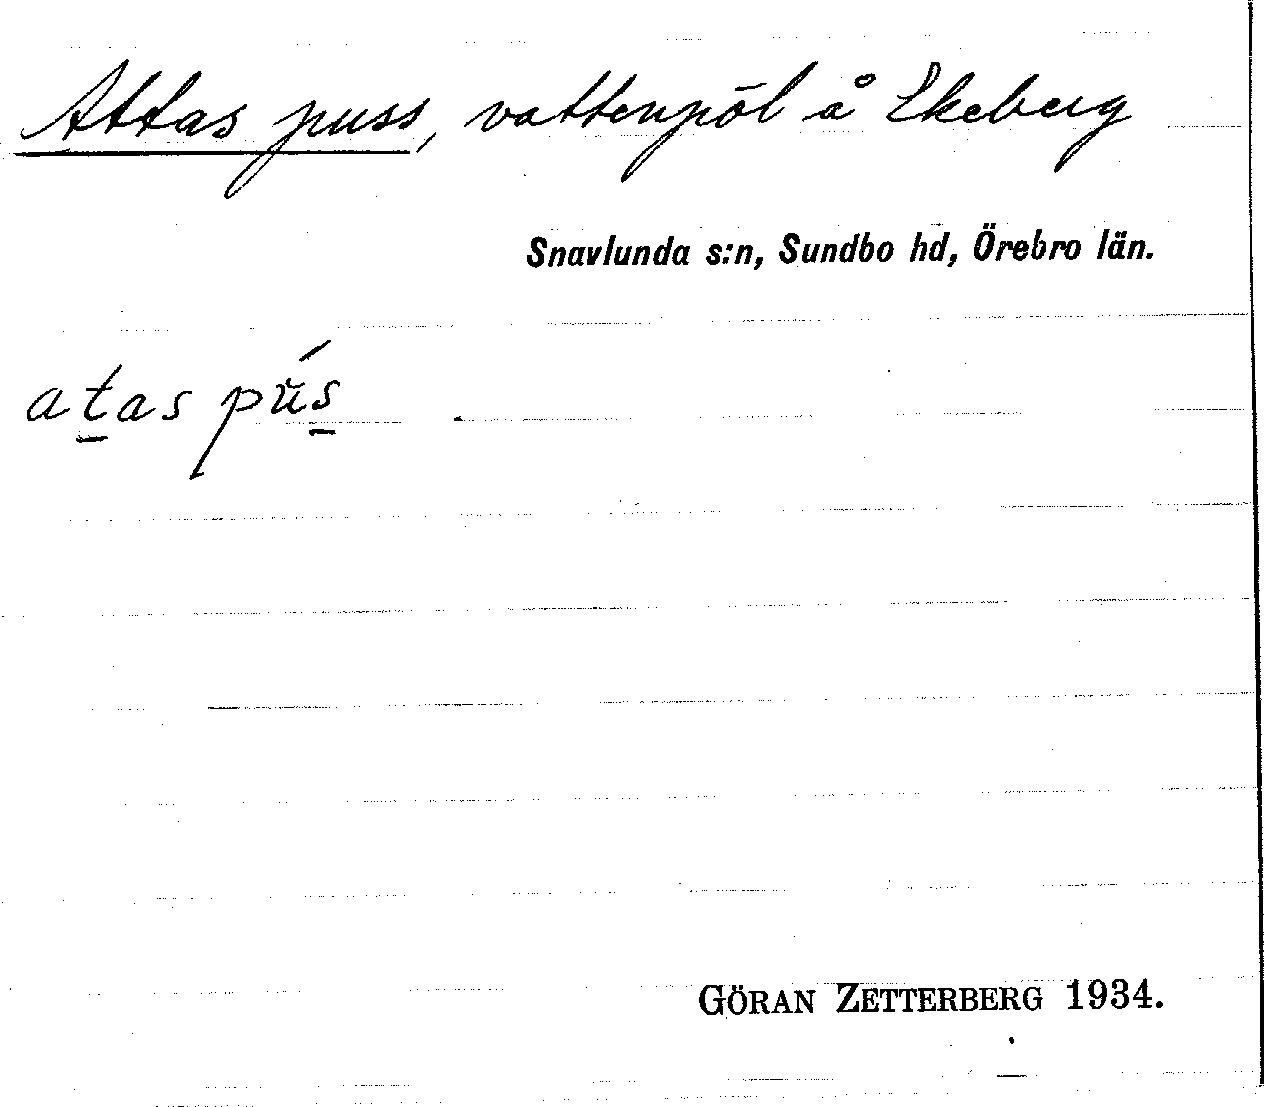 Attas puss, vattenpöl å Ekeberg
Snavlunda s:n, Sundbo hd, Örebro län.
atas pús
GÖRAN ZETTERBERG 1934.